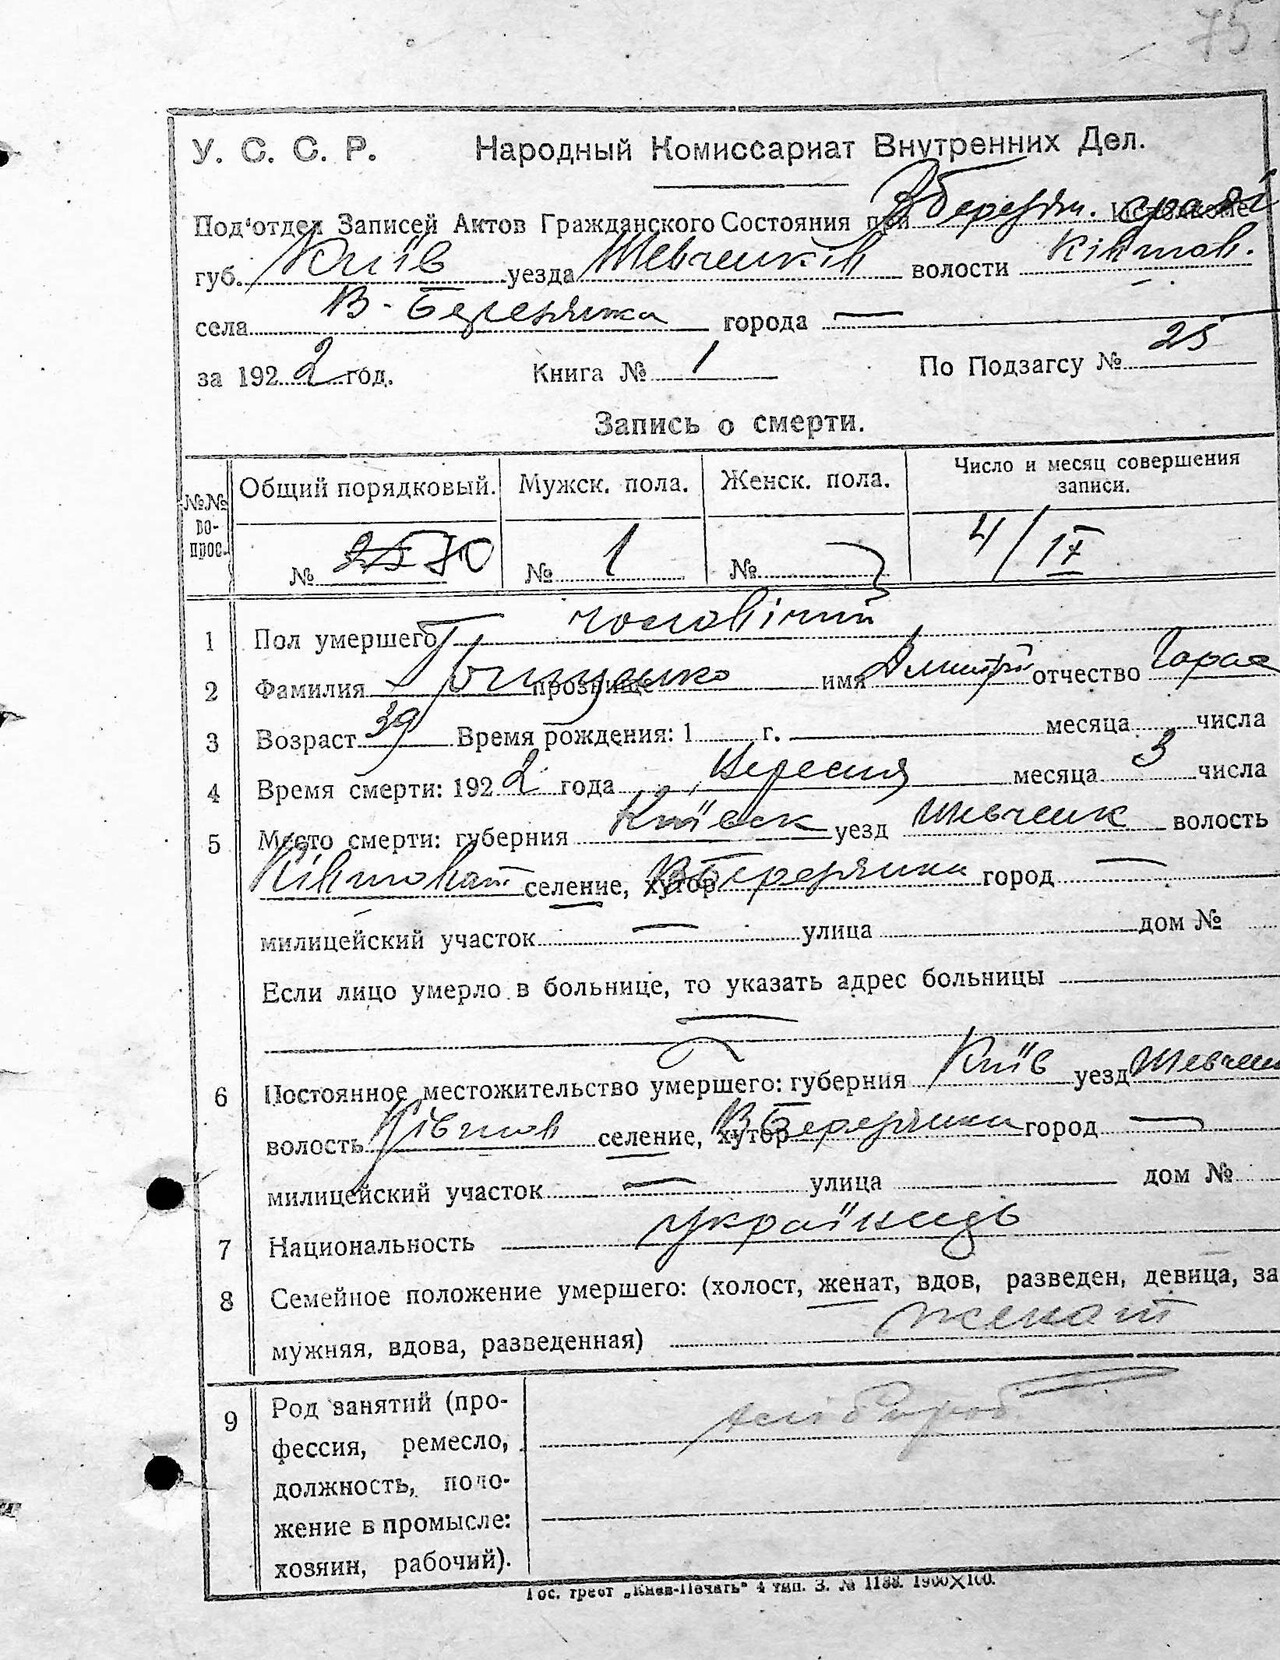 75
У. С. С. Р. Народный Комиссариат Внутренних Дел.
Под'отдел Записей Актов Гражданского Состояния при В Березян. Исполкоме
губ. Київ уезда Шевченків волости Квітков.
села В-Березянка города —
за 1922 год. Книга № 1 По Подзагсу № 25
Запись о смерти.
№№ вопрос. Общий порядковый. Мужск. пола. Женск. пола. Число и месяц совершения записи.
№ № 1 № 4/IX
1 Пол умершего чоловічий
2 Фамилия прозвище имя Дмитрій отчество Тарас
3 Возраст 39 Время рождения: 1 г. месяца числа
4 Время смерти: 1922 года Вересня месяца 3 числа
5 Место смерти: губерния Київск уезд Шевченк волость
селение, хутор В Березянки город —
милицейский участок — улица дом №
Если лицо умерло в больнице, то указать адрес больницы
—
6 Постоянное местожительство умершего: губерния Київ уезд Шевченк
волость Квітков селение, хутор В Березянки город —
милицейский участок — улица дом №
7 Национальность українець
8 Семейное положение умершего: (холост, женат, вдов, разведен, девица, за
мужняя, вдова, разведенная) женат
9 Род занятий (про-
фессия, ремесло,
должность, поло-
жение в промысле:
хозяин, рабочий). хлібороб
Гос. трест „Киев-Печать" 4 тип. З. № 1188. 1900×100.